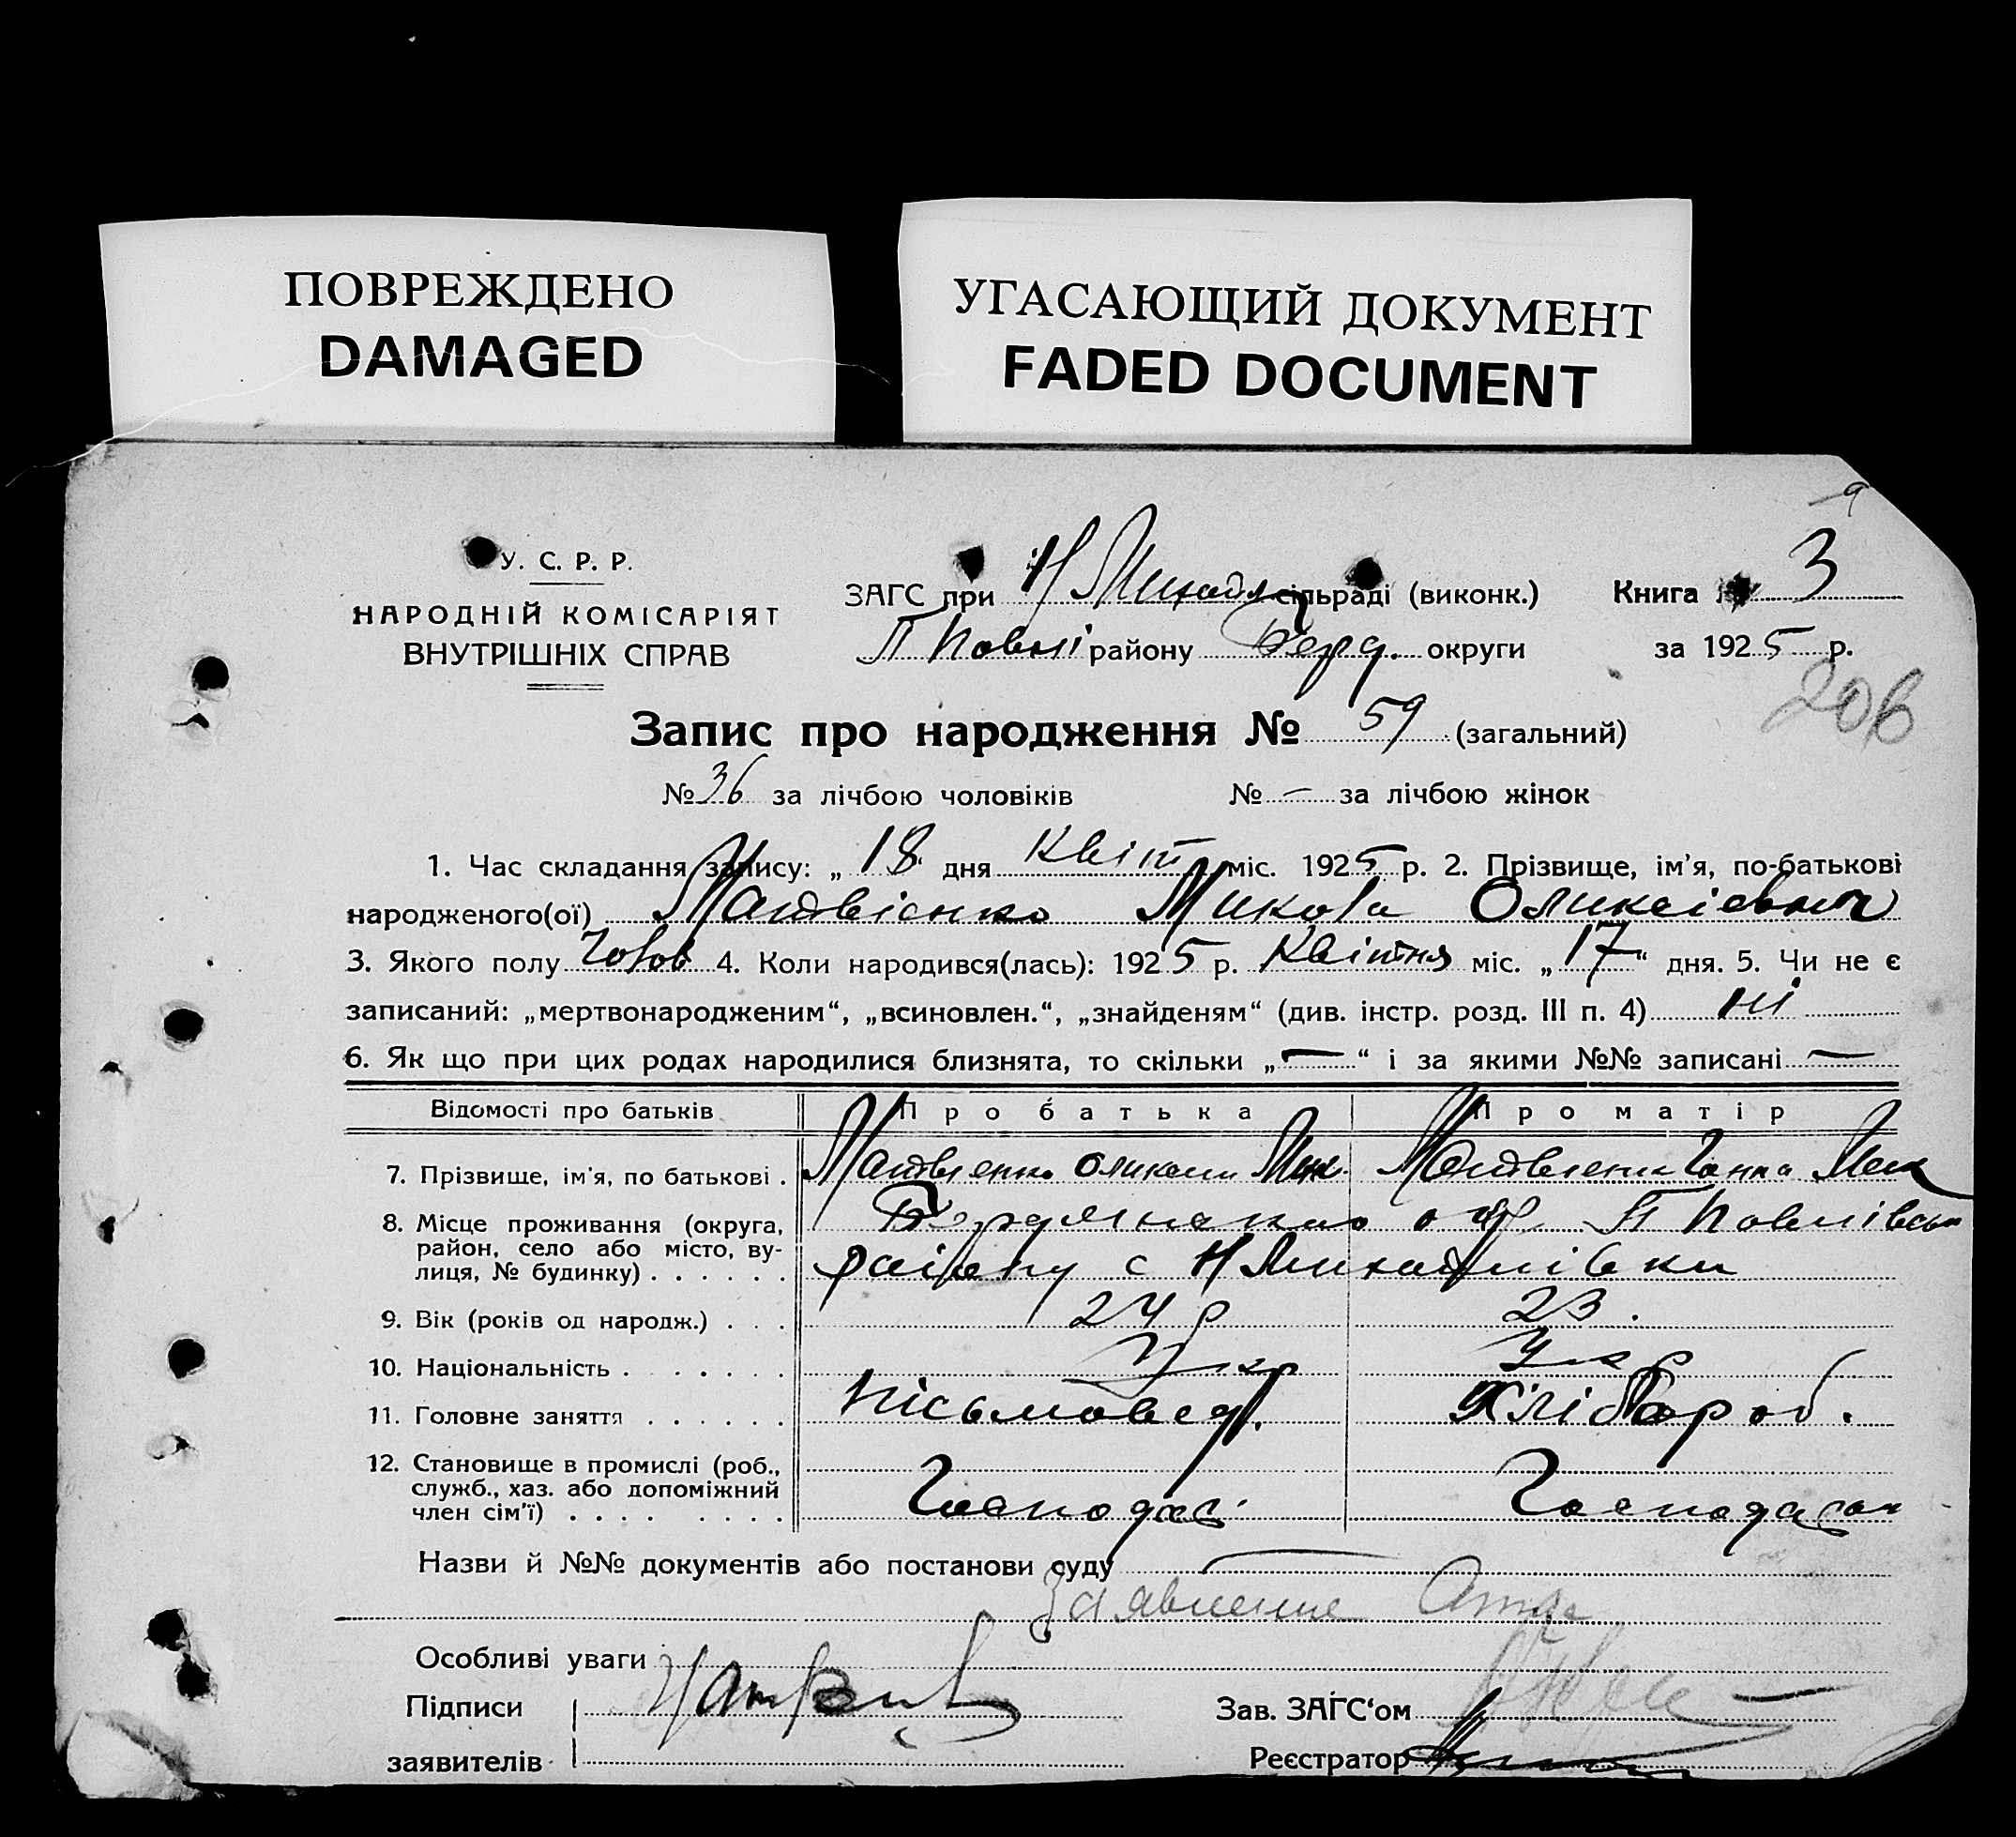 ПОВРЕЖДЕНО
DAMAGED
УГАСАЮЩИЙ ДОКУМЕНТ
FADED DOCUMENT
У. С. Р. Р.
НАРОДНІЙ КОМІСАРІЯТ
ВНУТРІШНІХ СПРАВ
ЗАГС при Н Михайл сільраді (виконк.)
районy Берд. округи
Книга № 3
за 1925 р.
206
Запис про народження № 59 (загальний)
№ 36 за лічбою чоловіків № — за лічбою жінок
1. Час складання запису: „ 18 дня Квітн міс. 1925 р. 2. Прізвище, ім'я, по-батькові
народженого(ої) Матвієнко Микола Олик­сієвич
3. Якого полу Чолов 4. Коли народився(лась): 1925 р. Квітня міс. „17“ дня. 5. Чи не є
записаний: „мертвонародженим“, „всиновлен.“, „знайденям“ (див. інстр. розд. III п. 4) ні
6. Як що при цих родах народилися близнята, то скільки „—“ і за якими №№ записані —
Відомості про батьків Про батька Про матір
7. Прізвище, ім'я, по батькові . Матвиенко Оликсии Мик. Матвиенк Ганна
8. Місце проживання (округа, район, село або місто, вулиця, № будинку) . . . . . . Бердянском окр.
району с Н Михайлівки
9. Вік (років од народж.) . . . 24 р 23.
10. Національність . . . . . . Укр Укр
11. Головне заняття . . . . . . Хліbороб.
12. Становище в промислі (роб.,
служб., хаз. або допоміжний
член сім'ї) . . . . . . . . Господар Господарон
Назви й №№ документів або постанови суду —
Заявление Отца
Особливі уваги
Підписи
заявителів
Зав. ЗАГС‘ом
Реєстратор